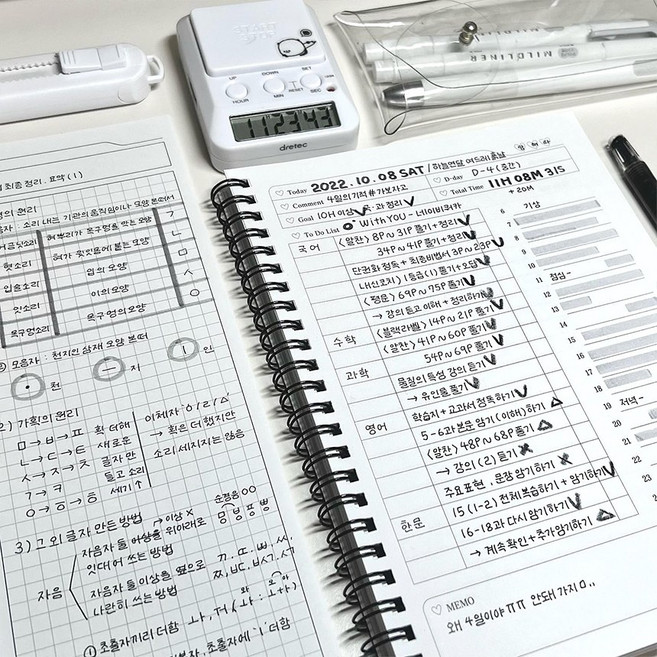 UP
DOWN
SET
HOUR
MIN
RESET
SEC
dretec
MILDLINER
최종 정리. 요약 (1)
혀뿌리가 목구멍을 막는 모양
혀가 윗잇몸에 붙는 모양
입의 모양
이의 모양
목구멍의 모양
혓소리
입술소리
잇소리
목구멍소리
ㄴ
ㅁ
ㅅ
ㅇ
모음자 : 천지인 삼재 모양 본떠
천
지
인
2) 가획의 원리
ㅁ→ㅂ→ㅍ
ㄴ→ㄷ→ㅌ
ㅅ→ㅈ→ㅊ
ㄱ→ㅋ
ㅇ→ㆆ→ㅎ
획 더해
새로운
글자 만
들고 소리
세기↑
→ 획은 더 했지만
소리 세지지는 않음
3) 그 외 글자 만든 방법
자음
자음자 둘 이상을 위아래로
잇대어 쓰는 방법
자음자 둘 이상을 옆으로
나란히 쓰는 방법
① 초출자끼리 더함
Today 2022.10.08 SAT
D-day D-4 (중간)
Comment 4일의 기적 #가보자고
Total Time 11H 08M 31S
+ 20M
Goal 10H 이상
To Do List
WithYOU - 네이비쿼카
국어 <알찬> 8P~31P 풀기+정리 V
34P~41P 풀기+정리 V
단권화 정독 + 최종비법서 3P~23P V
내신코치) 1등급(1) 풀기+오답 V
<평문> 69P~75P 풀기 V
→ 강의 듣고 이해 + 정리하기 V
수학 <블랙라벨> 14P~21P 풀기 V
과학 <알찬> 41P~60P 풀기 V
54P~69P 풀기 V
물질의 특성 강의 듣기 V
→ 유인물 풀기 V
학습지+교과서 정독하기 V
영어 5-6과 본문 암기(이해)하기 △
<알찬> 48P~68P 풀기 △
→ 강의 (2) 듣기 X
주요표현, 문장 암기하기 X
한문 15 (1-2) 전체복습하기 + 암기하기 V
16-18과 다시 암기하기 V
→ 계속확인+추가암기하기 △
6 기상
7
8
9
10
11 점심-
12
13
14
15
16
17
18
19 저녁-
20
21
22
23
MEMO
왜 4일이야 ㅠㅠ 안돼 가지마..